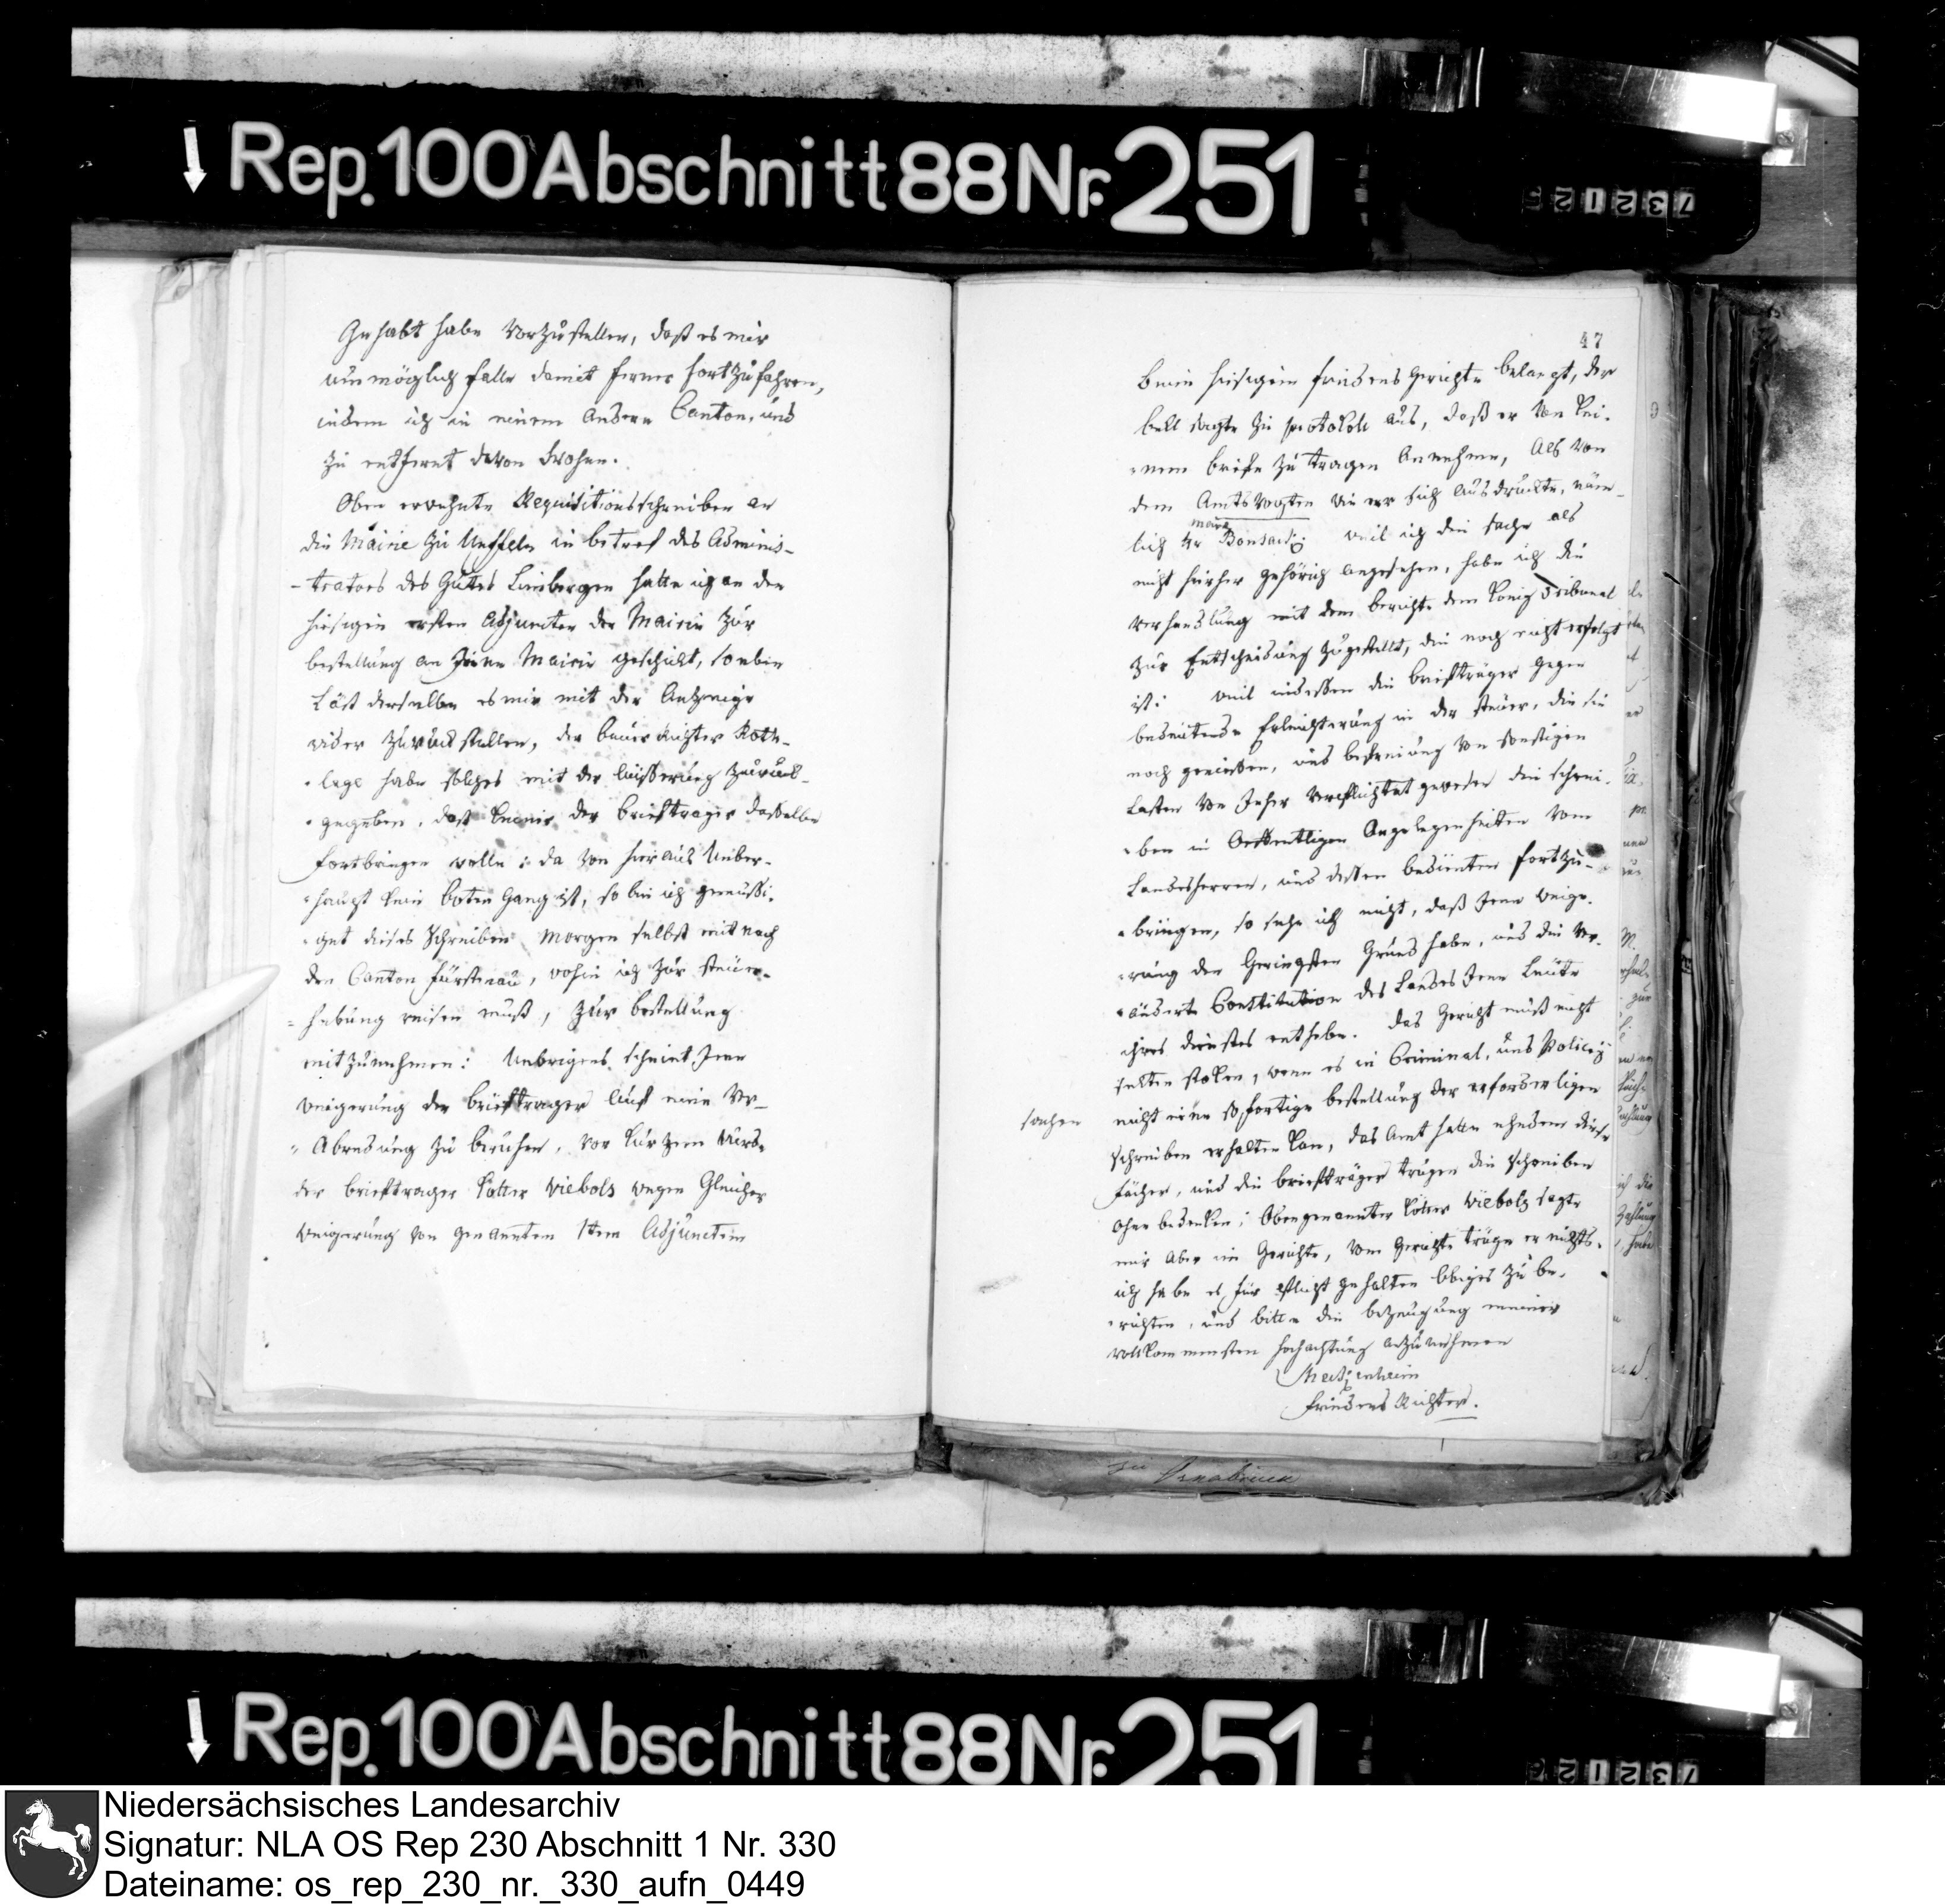 Rep. 100 Abschnitt 88 Nr. 251
73212
Gehabt habe vorzustellen, daß es mir
unmöglich falle damit ferner fortzufahren,
indem ich in einem andern Canton, und
zu entfernt davon wohne.
Oben erwehnte Requisitionsschreiben an
die Mairie zu Ueffeln in betref des Adminis-
-trators des Gutes Limbergen hatte ich an den
hiesigen ersten Adjuncten der Mairie zur
bestellung an jene Mairie geschickt, so eben
läst derselbe es mir mit der Anzeige
wider zurückstellen, der bauerrichter Roth-
-lage habe solches mit der äusserung zurück-
-gegeben, daß keiner der briefträger dasselbe
fortbringen wolle: da von hier aus Ueber-
-haupt kein boten Gang ist, so bin ich genüßi-
-get dieses Schreiben Morgen selbst mit nach
den Canton Fürstenau, wohin ich zur steuer-
-hebung reisen muß, zur bestellung
mitzunehmen: Uebrigens scheint jene
weigerung der briefträger auf eine Ver-
-Abredung zu beruhen, vor kurzem wurde
der briefträger Kötter Viebolds wegen Gleicher
weigerung von genanntem 1ten Adjuncten
47
beim hiesigen friedens Gerichte belangt, der
bekl sagte zu protokoll aus, daß er von kei-
-nem briefe zu tragen Annehme, Als von
dem Amts Vogten wie er sich ausdruckte, näm-
maire
lich Hr Bonsack; weil ich die sache als
nicht hierher gehörig angesehen, habe ich die
verhandlung mit dem berichte dem König Tribunal
zur Entscheidung zugestellt, die noch nicht erfolgt
ist: weil indessen die briefträger gegen
bedeutende Erleichterung in der steuer, die sie
noch geniessen, und befreiung von sonstigen
Lasten von Jeher verpflichtet gewesen die schrei-
-ben in Oeffentligen Angelegenheiten vom
Landesherren, und dessen bedienten fortzu-
-bringen, so sehe ich nicht, daß jene weige-
-rung den Geringsten Grund habe, und die ver-
-änderte Constitution des Landes jene Leute
ihres dienstes enthebe. das Gericht muß nicht
selten stoken, wenn es in Criminal, und Policey
sachen
nicht eine so fortige bestellung der erforderligen
schreiben erhalten kan, das Amt hatte ehedem diese
fächer, und die briefträger trugen die schreiben
ohne bedenken; Obengenannter Kötter Viebolds sagte
mir Aber im Gerichte, vom Gerichte trüge er nichts.
ich habe es für pflicht gehalten obiges zu be-
-richten, und bitte die bezeugung meiner
vollkommensten hochachtung anzunehmen
friedens Richter.
zu Osnabrück
Rep. 100 Abschnitt 88 Nr. 251
73212
Niedersächsisches Landesarchiv
Signatur: NLA OS Rep 230 Abschnitt 1 Nr. 330
Dateiname: os_rep_230_nr._330_aufn_0449